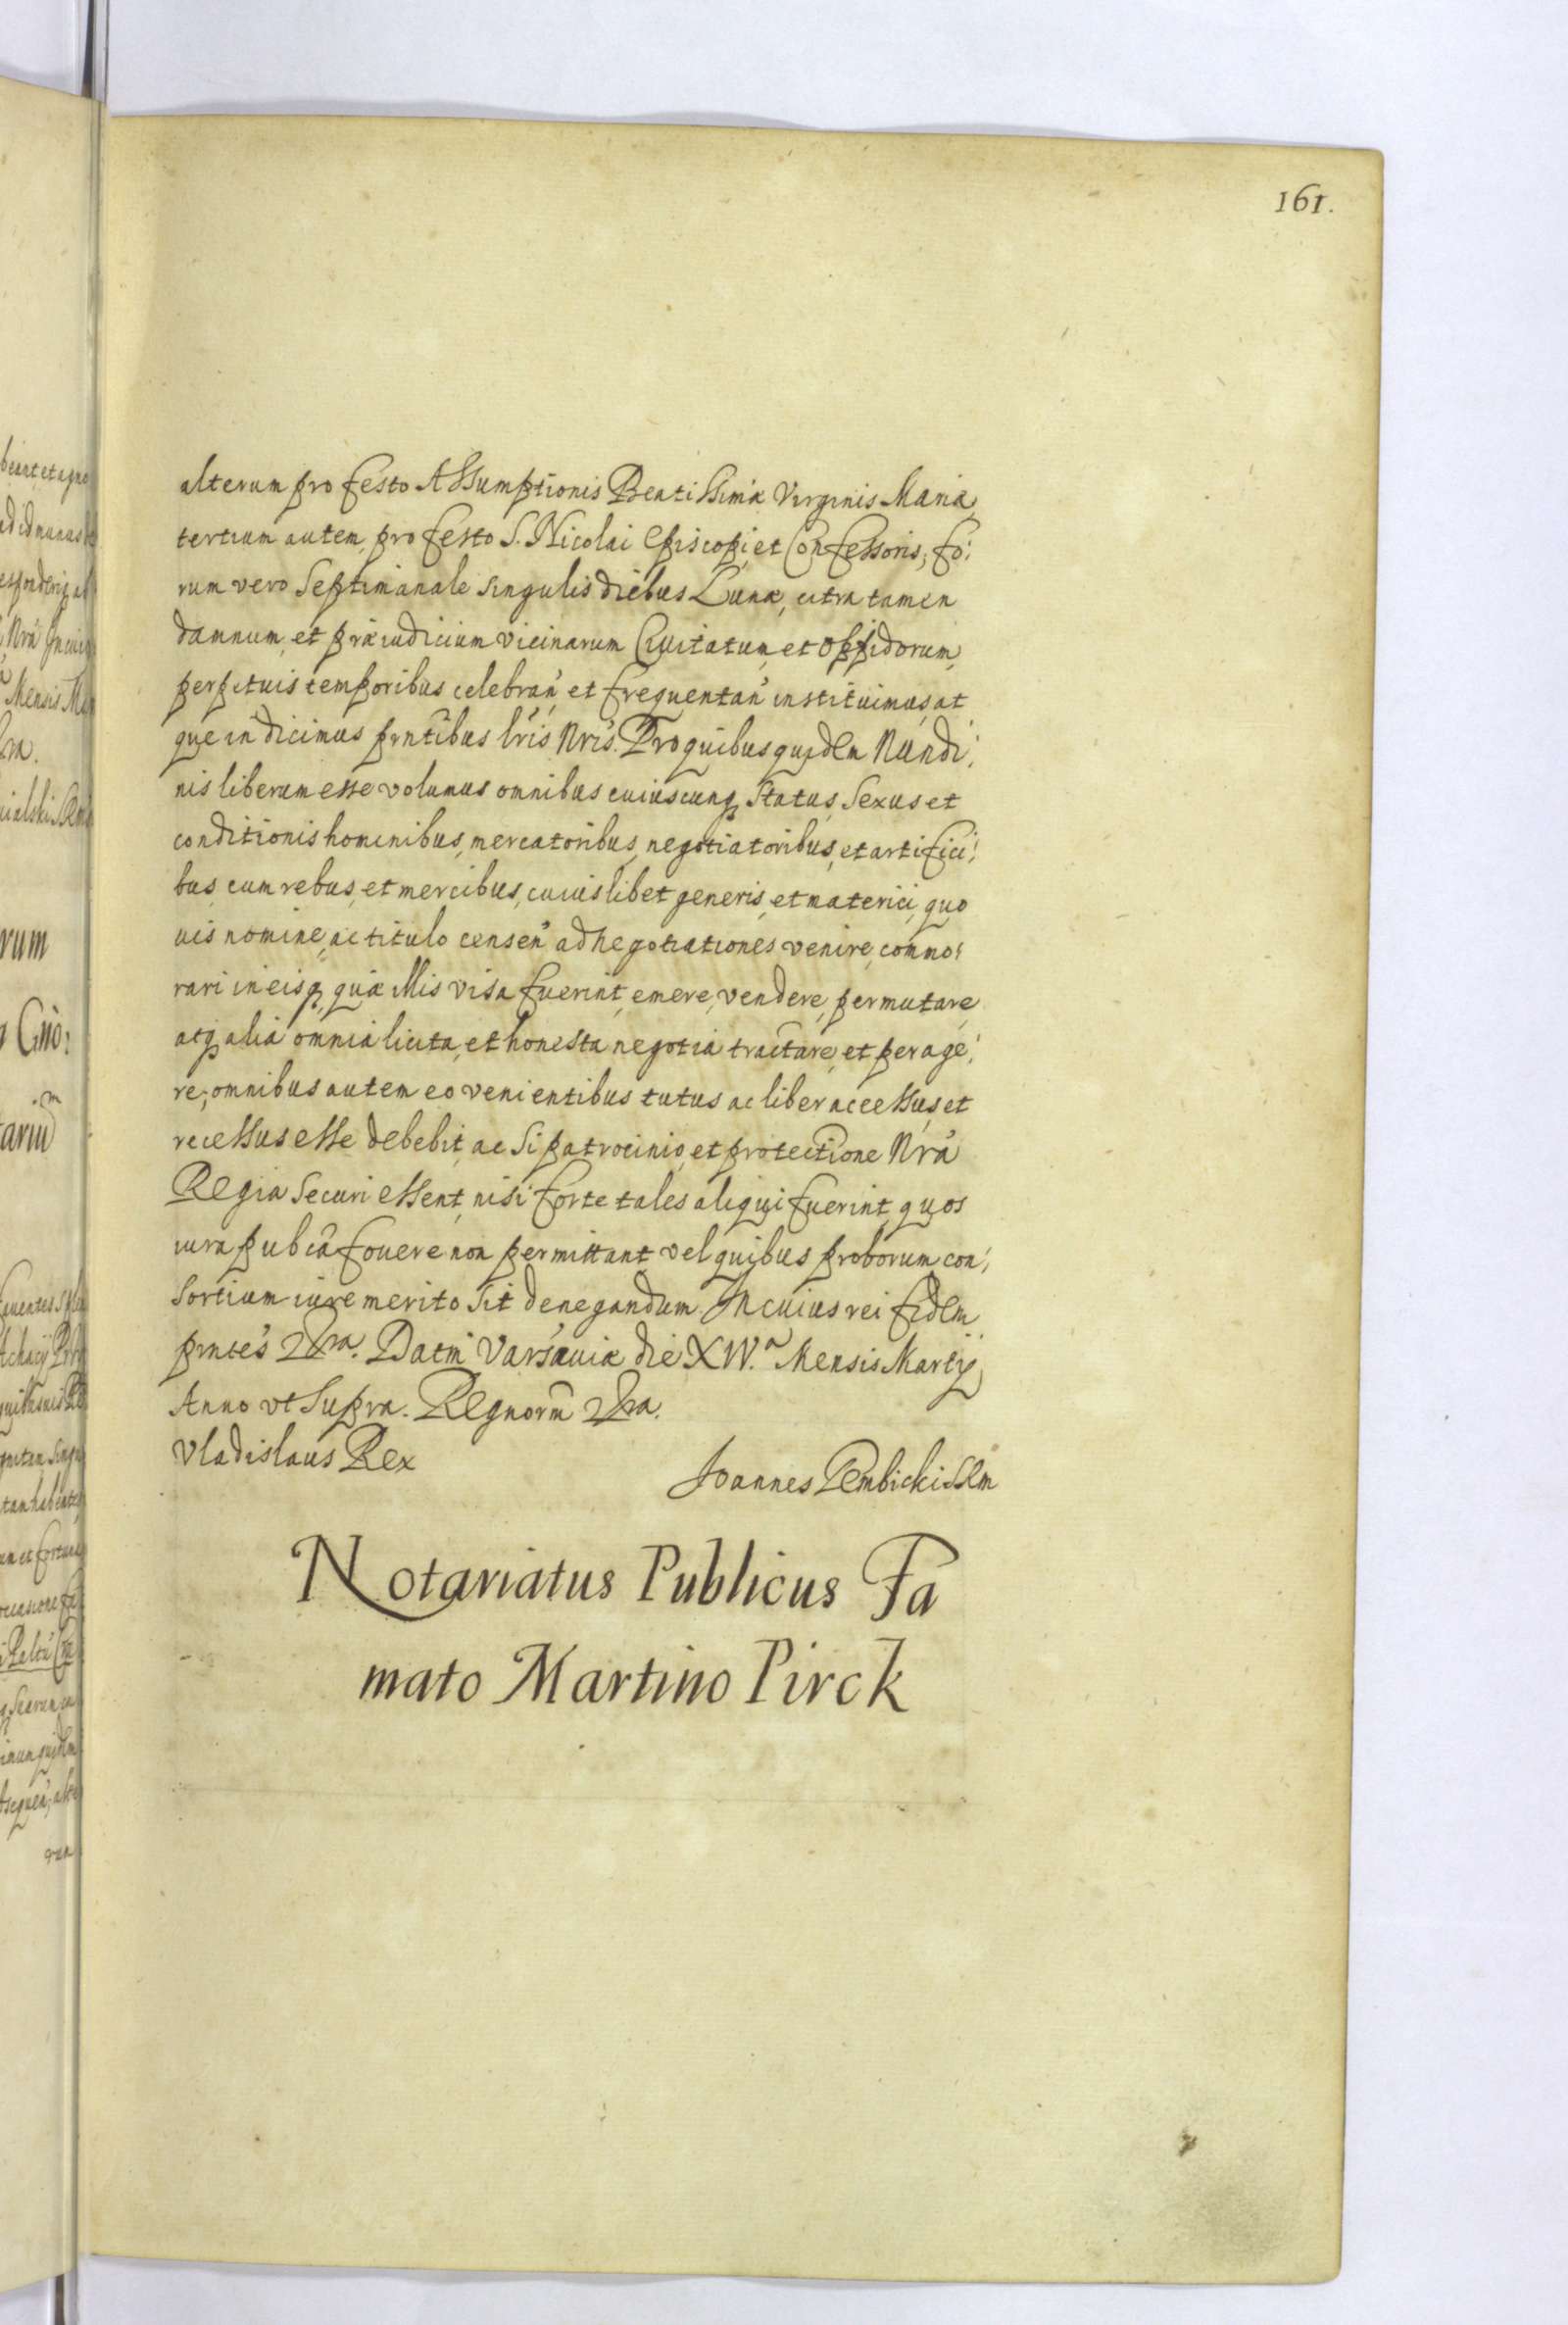 161.
alterum pro festo Assumptionis Beatissimæ Virginis Mariæ,
tertium autem, pro festo S. Nicolai Episcopi, et Confessoris, fo:
rum vero septimanale singulis diebus Lunæ, citra tamen
damnum, et præiudicium vicinarum Civitatum, et oppidorum,
perpetuis temporibus celebran̄ et frequentan̄ instituimus, at
que indicimus pn̄tibus lr̄is nr̄is. Pro quibus quidem Nundi:
nis liberum esse volumus omnibus cuiuscunq status, sexus et
conditionis hominibus, mercatoribus, negotiatoribus, et artifici:
bus, cum rebus, et mercibus, cuiuslibet generis, et materiei, quo
vis nomine, ac titulo censen̄ ad negotiationes venire, commo:
rari in eisq, quæ illis visa fuerint, emere, vendere, permutare,
atq alia omnia licita, et honesta negotia tractare, et perage:
re; omnibus autem eo venientibus tutus ac liber accessus, et
recessus esse debebit, ac si patrocinio, et protectione Nr̄a
Regia securi essent, nisi forte tales aliqui fuerint, quos
iura pub̄ca fouere non permittant, vel quibus proborum con:
sortium iure merito sit denegandum. In cuius rei fidem
pn̄tes &ra. Datm̄ Varsauiæ die XIV.a Mensis Martij,
Anno vt supra. Regnorm̄ &ra.
Vladislaus Rex
Joannes Gembicki SRm
Notariatus Publicus Fa
mato Martino Pirck